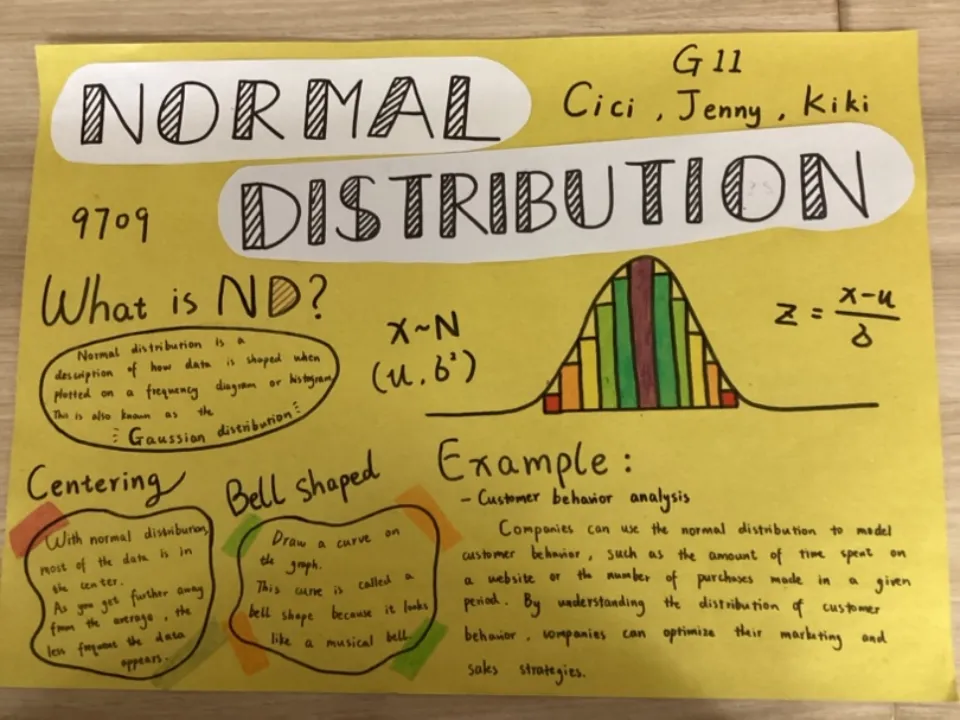 NORMAL
G11
Cici , Jenny , Kiki
DISTRIBUTION
9709
What is ND?
Normal distribution is a
description of how data is shaped when
plotted on a frequency diagram or histogram
This is also known as the
Gaussian distribution
x~N
(u, 6²)
z = x-u
6
Centering
With normal distribution,
most of the data is in
the center.
As you get further away
from the average, the
less frequent the data
appears.
Bell shaped
Draw a curve on
the graph.
This curve is called a
bell shape because it looks
like a musical bell.
Example :
- Customer behavior analysis
Companies can use the normal distribution to model
customer behavior, such as the amount of time spent on
a website or the number of purchases made in a given
period. By understanding the distribution of customer
behavior, companies can optimize their marketing and
sales strategies.